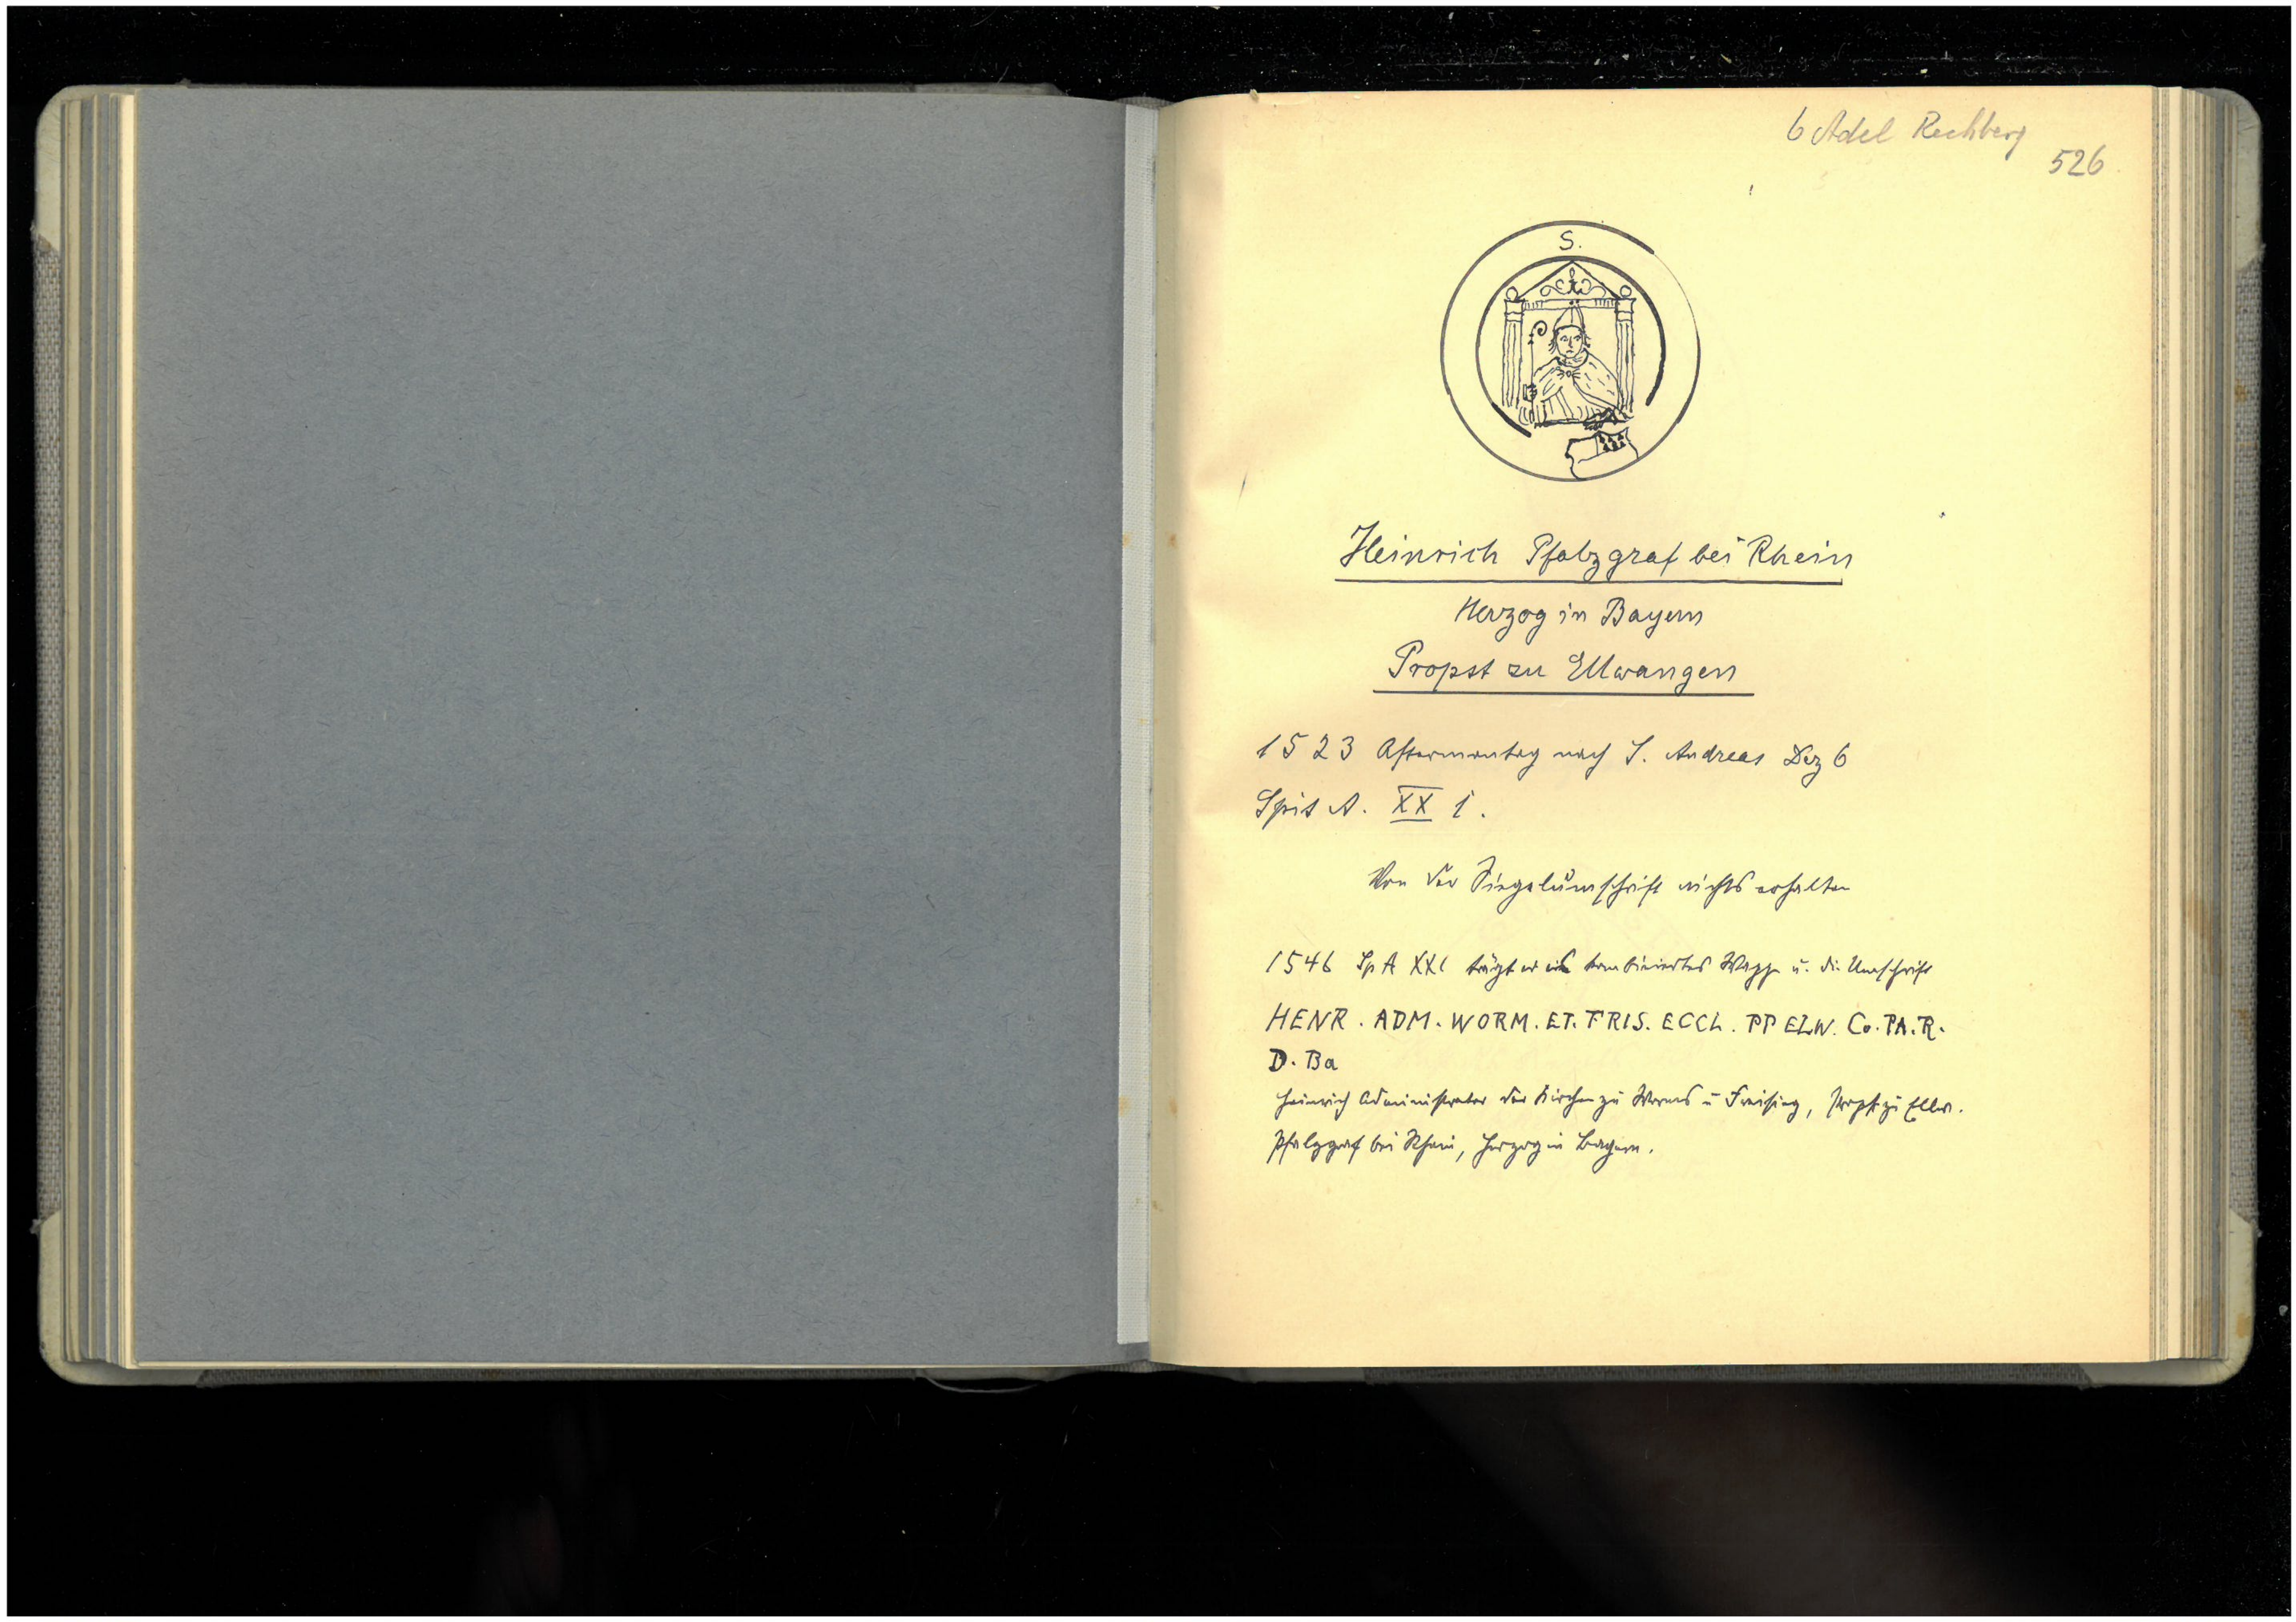 6 Adel Rechberg
526
S.
Heinrich Pfalzgraf bei Rhein
Herzog in Bayern
Propst zu Ellwangen
1523 Aftermontag nach S. Andreas Dez 6
Spit A. XX 1.
Von der Siegelumschrift nichts erhalten
1546 Sp A XX1 trägt er ein kombiniertes Wappen u. die Umschrift
HENR. ADM. WORM. ET. FRIS. ECCL. PP ELW. Co. PA. R.
D. Ba
Heinrich Administrator der Kirchen zu Worms u Freising, Propst zu Ellw.
Pfalzgraf bei Rhein, Herzog in Bayern.